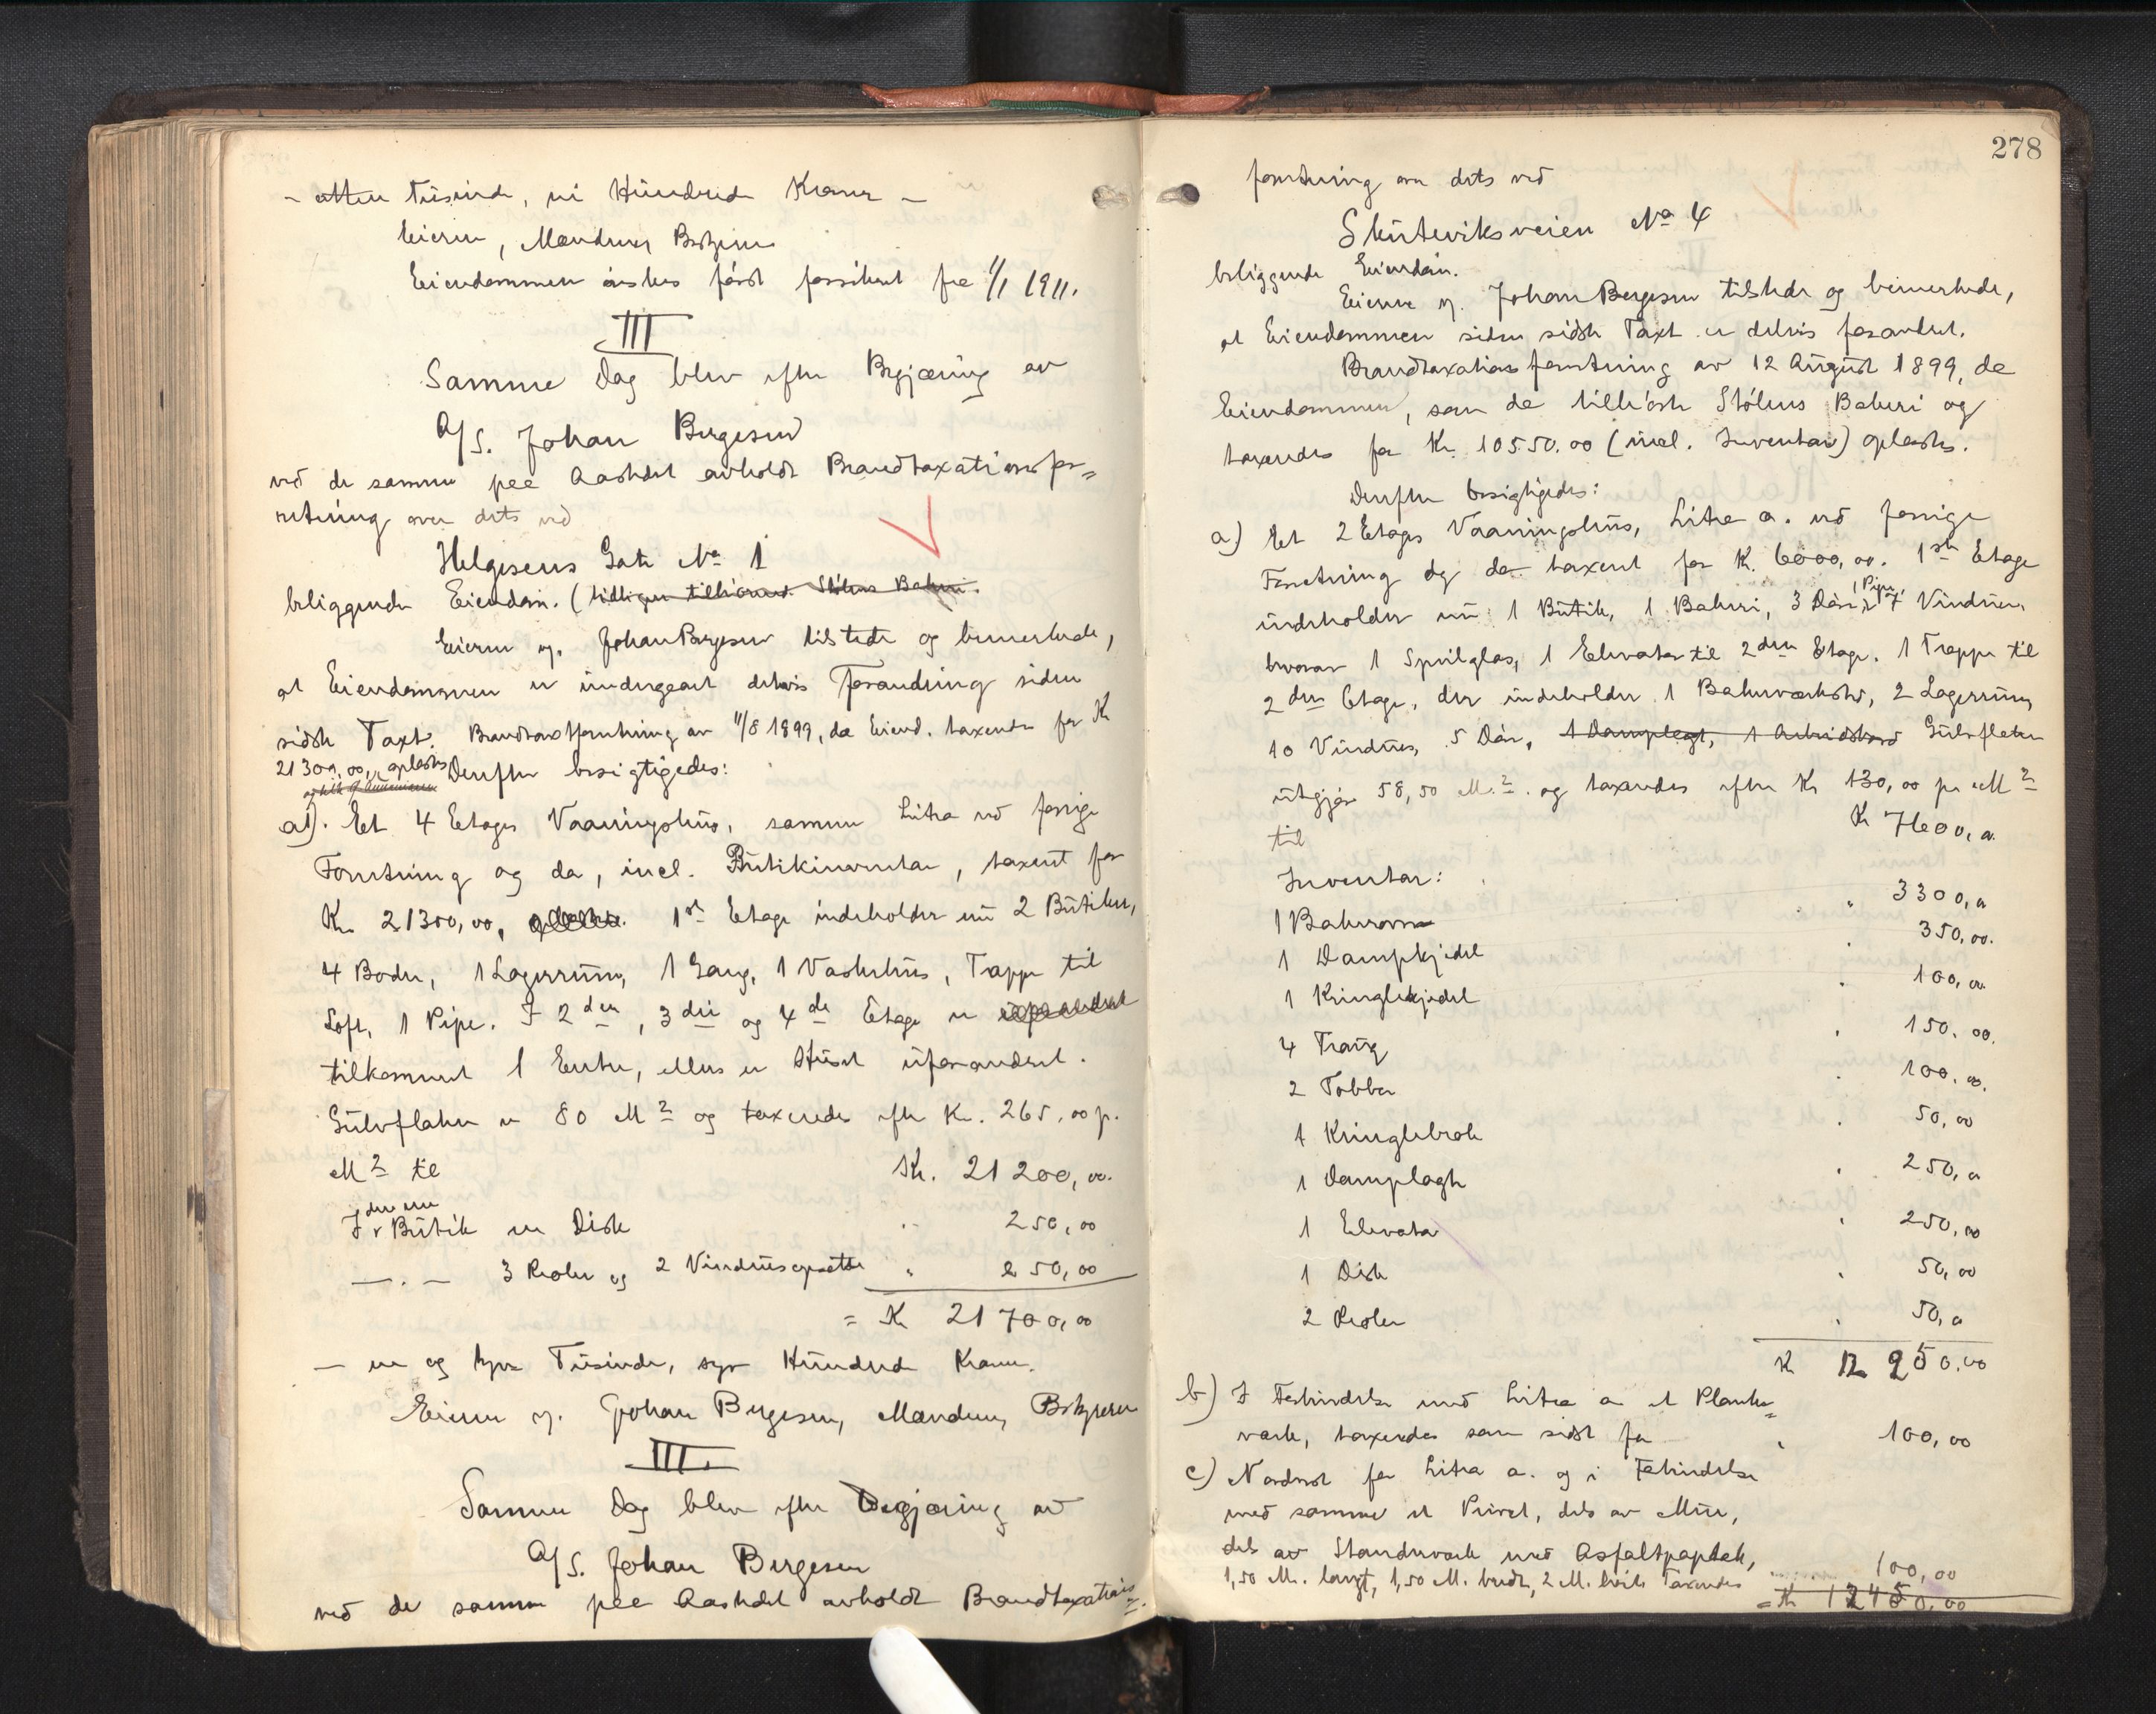 - atten Tusinde, ni Hundrede Kroner -
Eieren, Mændene, Bestyrer
Eiendommen ønskes først forsikret fra 1/1 1911.
III
Samme Dag blev efter Begjæring av
A/S. Johan Bergesen
ved de samme paa Aastedet avholdt Brandtaxationsfor=
retning over dets ved
Helgesens Gate No 1
beliggende Eiendom. (tidligere tilhørende Stölens Bakeri.
Eieren v. Johan Bergesen tilstede og bemerkede,
at Eiendommen er undergaat delvis Forandring siden
sidste Taxt. Brandtaxtforretning av 11/8 1899, da Eiend. taxertes for Kr
21300,00, oplæstes Derefter besigtigedes:
a). Et 4 Etages Vaaningshus, samme Litra ved forrige
Forretning og da, incl. Butikinventar, taxert for
Kr. 21300,00, 1st Etage indeholder nu 2 Butiker,
4 Boder, 1 Lagerrum, 1 Gang, 1 Vaskehus, Trappe til
Loft, 1 Pipe. I 2den, 3die og 4de Etage er uforandret
tilkommet 1 Entre, ellers er Huset uforandret.
Gulvflaten er 80 M2 og taxeredes efter Kr. 265,00 p.
M2 til Kr. 21 200,00.
I den ene Butik en Disk " 250,00
— . — 3 Reoler og 2 Vindusopsatte " 250,00
= Kr 21 700,00
— en og tyve Tusinde, syv Hundrede Kroner.
Eieren v. Johan Bergesen, Mændene, Bestyreren
III.
Samme Dag blev efter Begjæring av
A/S. Johan Bergesen
ved de samme paa Aastedet avholdt Brandtaxations=
278
forretning over dets ved
Skuteviksveien No 4
beliggende Eiendom.
Eieren v. Johan Bergesen tilstede og bemerkede,
at Eiendommen siden sidste Taxt er delvis forandret.
Brandtaxationsforretning av 12 August 1899, da
Eiendommen, som da tilhørte Stölens Bakeri og
taxertes for Kr. 10550.00 (incl. Inventar) oplæstes.
Derefter besigtigedes:
a) Et 2 Etages Vaaningshus, Litra a. ved forrige
Forretning og da taxert for K. 6000,00. 1ste Etage
indeholder nu 1 Butik, 1 Bakeri, 3 Døre, 1 Pipe, 7 Vinduer,
hvorav 1 Speilglas, 1 Elevator til 2den Etage. 1 Trappe til
2den Etage, der indeholder 1 Bakerværksted, 2 Lagerrum,
10 Vinduer, 5 Døre, 1 Damplagt, 1 Arbeidsbord Gulvflaten
utgjør 58,50 M2. og taxeredes efter Kr 130,00 pr M2
til Kr 7600,00
Inventar:
1 Bakerovn " 3300,00
1 Dampkjedel " 350,00.
1 Kringlekjedel " 100,00
4 Traug " 150.00.
2 Tobber " 100,00.
1 Kringlebrak " 50,00
1 Damplagte " 250,00
1 Elevator " 250,00
1 Disk " 50,00
2 Reoler " 50,00
K 12 250,00
b) I Forbindelse med Litra a et Planke=
værk, taxeredes som sidst for " 100,00
c) Nordost for Litra a. og i Forbindelse
med samme et Privet, dels av Mur,
dels av Standerverk med Asfaltpaptak,
1,50 M. langt, 1,50 M. bredt, 2 M. høit Taxeredes " 100,00
= Kr 12450,00